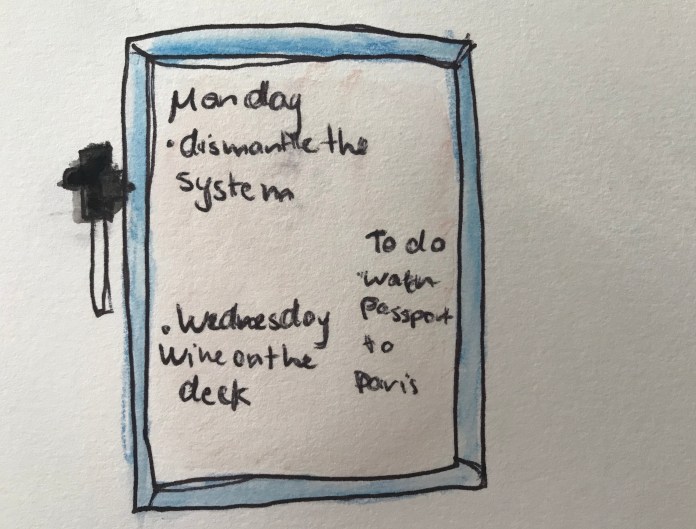 Monday
• dismantle the
system
• Wednesday
Wine on the
deck
To do
passport
to
paris